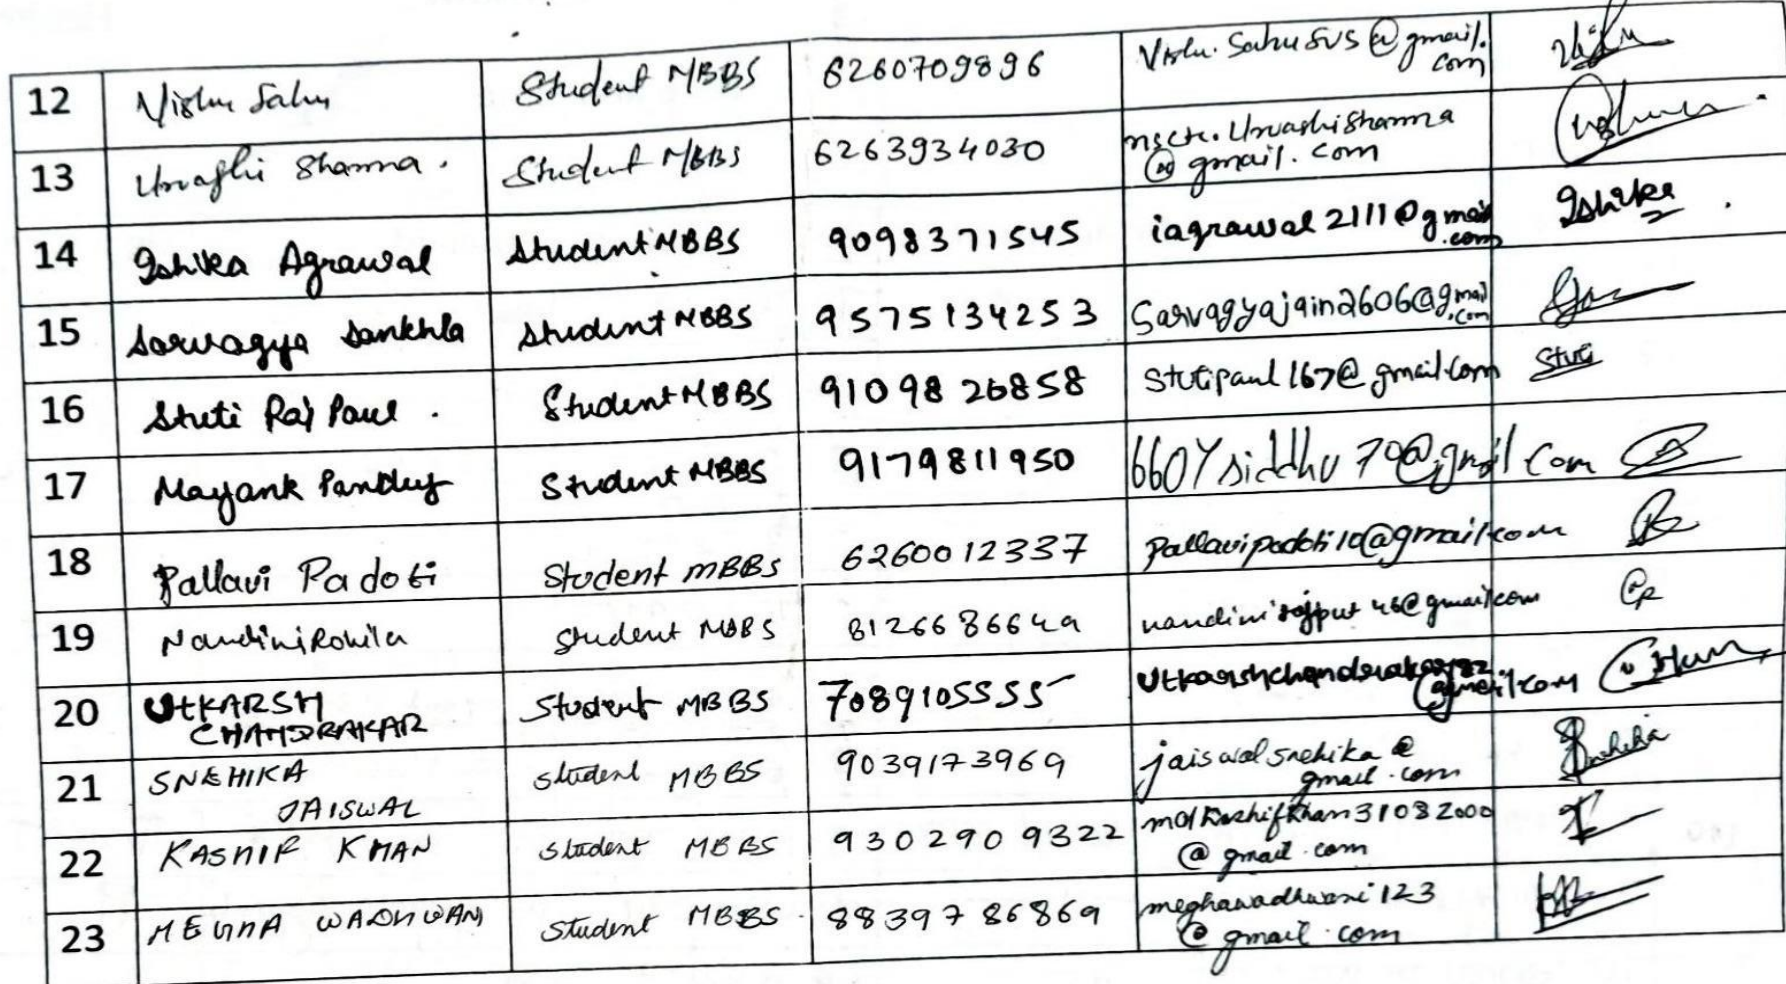 12 Vishu Sahu Student MBBS 6260709896 Vishu.Sahusvs@gmail.com
13 Urvashi Sharma. Student MBBS 6263934030 UrvashiSharma @gmail.com
14 Ishika Agrawal Student MBBS 9098371545 iagrawal2111@gmail.com Ishika
15 Sarvagya Sankhla Student MBBS 9575134253 Sarvagyajain2606@gmail.com
16 Stuti Raj Paul. Student MBBS 9109826858 Stutipaul167@gmail.com Stuti
17 Mayank Pandey Student MBBS 9179811950
18 Pallavi Padoti Student MBBS 6260012337 Pallavipadoti10@gmail.com
19 Nandini Rohila Student MBBS 8126686649 nandinirajput46@gmail.com
20 UTKARSH
CHANDRAKAR Student MBBS 7089105555
@gmail.com
21 SNEHIKA
JAISWAL Student MBBS 9039173969 jaiswalsnehika@
gmail.com Snehika
22 KASHIF KHAN Student MBBS 9302909322 mdkashifkhan31082000
@gmail.com
23 MEGHA WADHWANI Student MBBS 8839786869 meghawadhwani123
@gmail.com